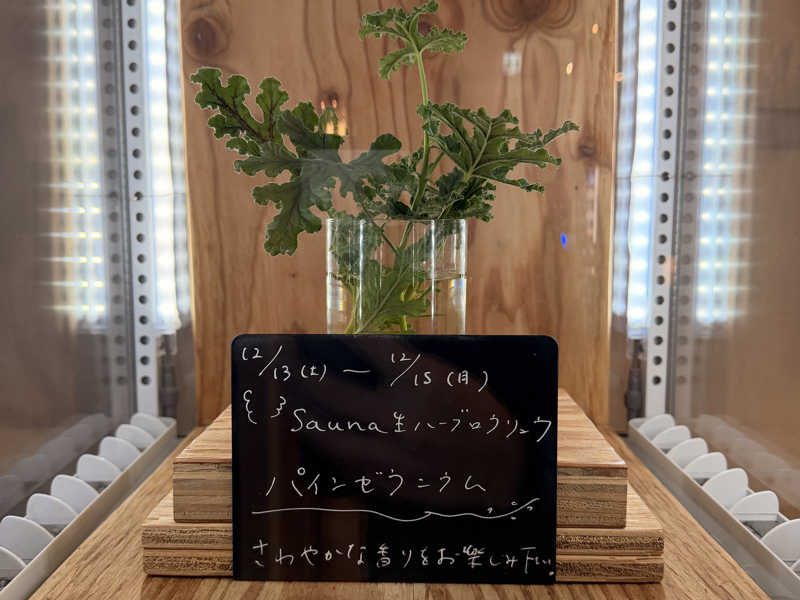 12/13(土) ー 12/15(月)
Sauna生ハーブロウリュウ
パインゼラニウム
さわやかな香りをお楽しみ下さい。